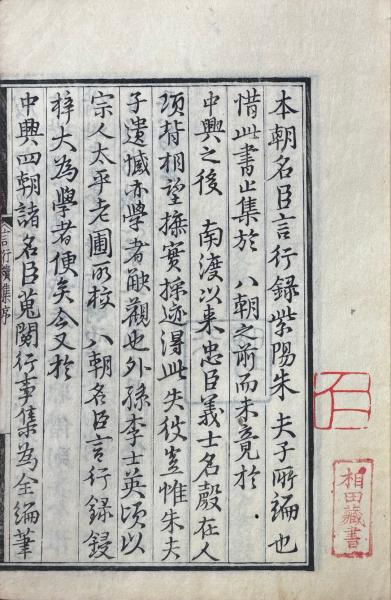 本朝名臣言行録紫陽朱 夫子所編也
惜此書止集於 八朝之前而未竟於
中興之後 南渡以来忠臣義士名聲在人
項背相望摭實探迹得此失彼豈惟朱夫
子遺憾亦學者觖觀也外孫李士英頃以
宗人太平老圃所校 八朝名臣言行録鋟
梓大為學者便矣今又於
中興四朝諸名臣蒐閱行事集為全編筆
言行續集序
相田藏書